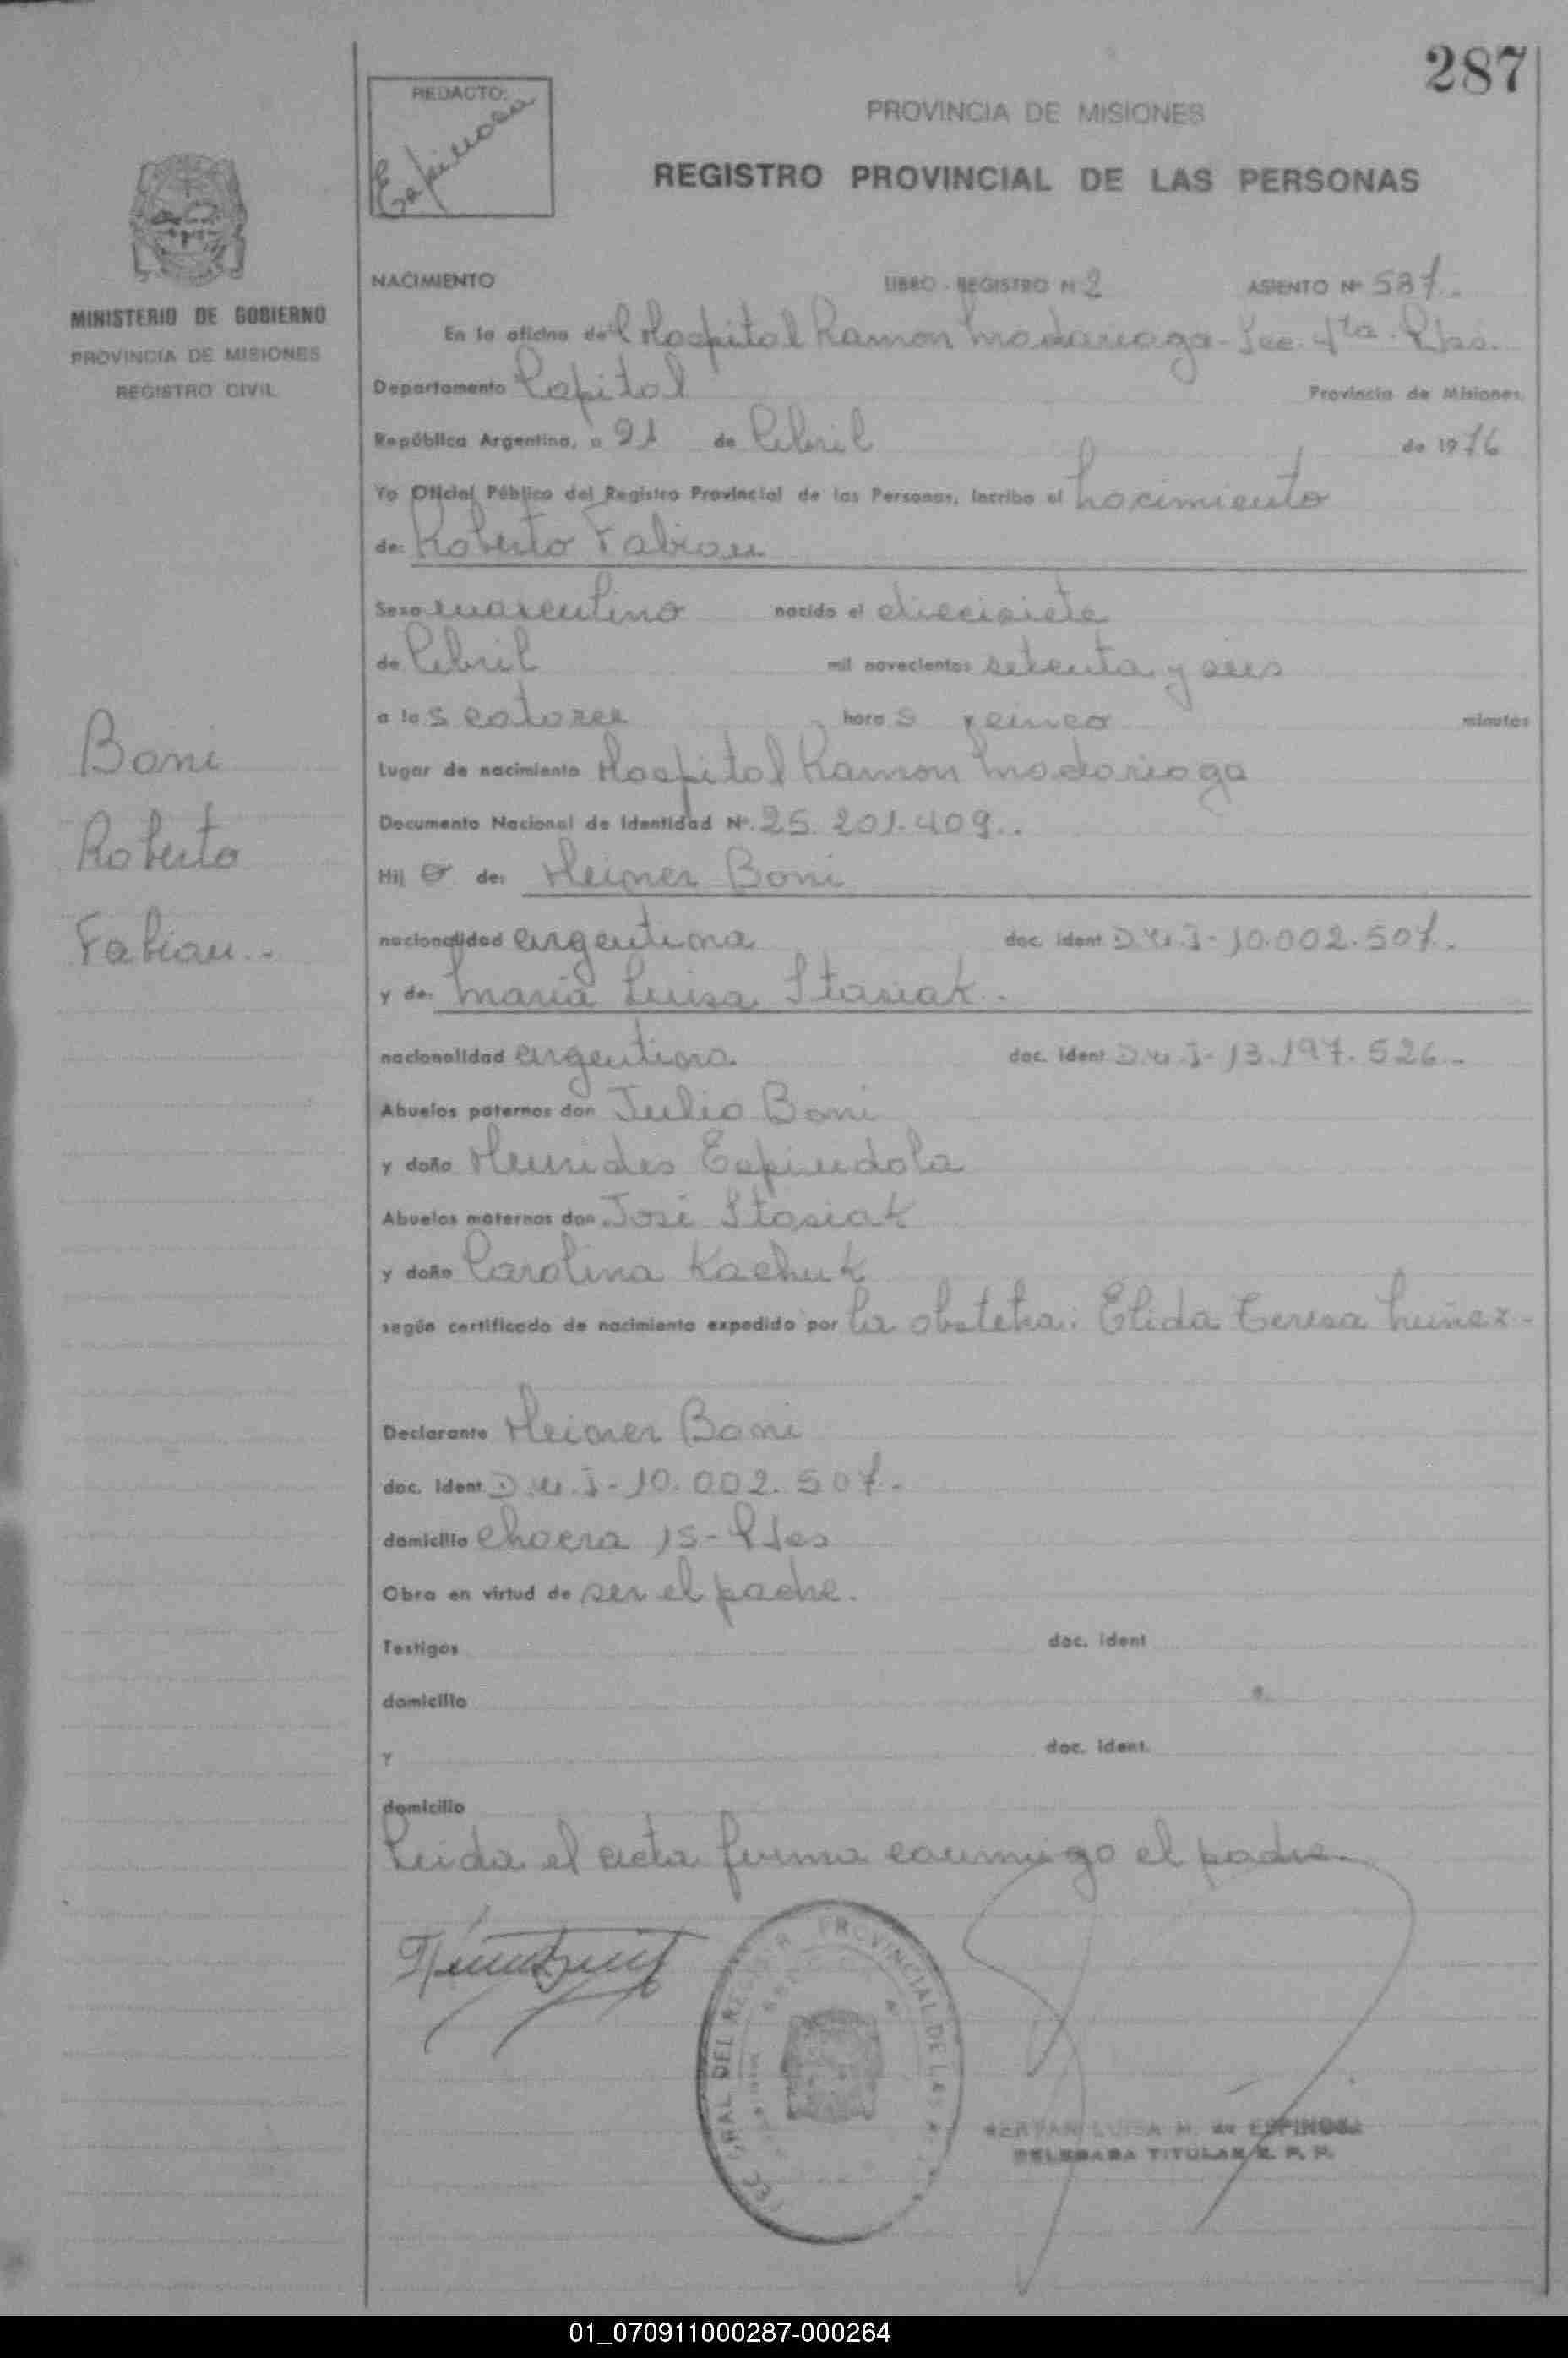 287
REDACTO:
Espinosa
PROVINCIA DE MISIONES
REGISTRO PROVINCIAL DE LAS PERSONAS
MINISTERIO DE GOBIERNO
PROVINCIA DE MISIONES
REGISTRO CIVIL
NACIMIENTO LIBRO - REGISTRO N 2 ASIENTO Nº 537.
En la oficina del Hospital Ramon Madariaga - Sec. 4ta.
Departamento Capital Provincia de Misiones,
República Argentina, a 21 de Abril de 1976
Yo Oficial Público del Registro Provincial de las Personas, incribo el nacimiento
de: Roberto Fabian
Sexo masculino nacido el diecisiete
de Abril mil novecientos setenta y seis
a las catorce horas y cinco minutos
Lugar de nacimiento Hospital Ramon Madariaga
Documento Nacional de Identidad Nº. 25.201.409..
Hijo de: Heimer Boni
nacionalidad argentina doc. ident. D.N.I - 10.002.507.
y de: Maria Luisa Stasiak.
nacionalidad argentina doc. ident. D.N.I - 13.197.526.-
Abuelos paternos don Julio Boni
y doña Espindola
Abuelos maternos don José Stasiak
y doña Carolina Kachuk
según certificado de nacimiento expedido por La obstetra: Elida Teresa Nuñez.-
Declarante Heimer Boni
doc. ident. D.N.I - 10.002.507.-
domicilio Chacra 15 - Pdas
Obra en virtud de ser el padre.
Testigos doc. ident
domicilio
y doc. ident.
domicilio
Leida el acta firma conmigo el padre.-
Boni
Roberto
Fabian..
PROVINCIAL DE LAS
GRAL DEL
LUISA M. de ESPINOSA
DELEGADA TITULAR R. P. P.
01_070911000287-000264